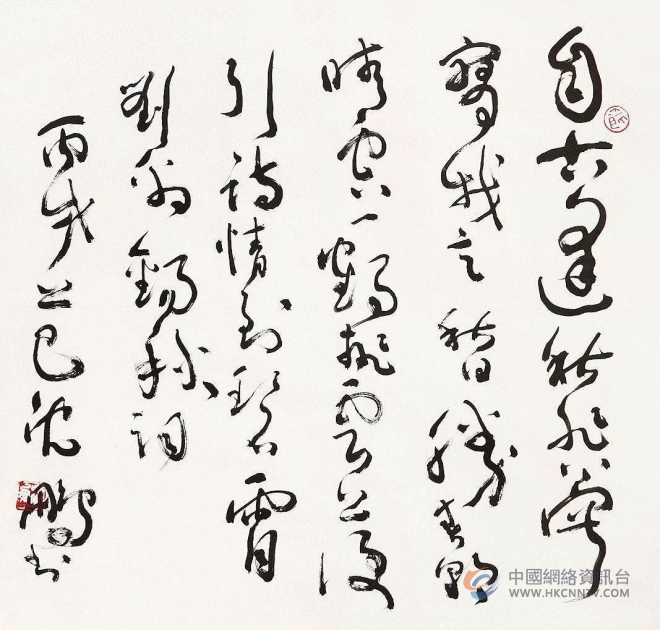 自古逢秋悲寂
寥我言秋日勝春朝
晴空一鶴排雲上便
引詩情到碧霄
劉禹錫秋詞
丙戌上巳沈鵬書
中國網絡資訊台
WWW.HKCNNTV.COM